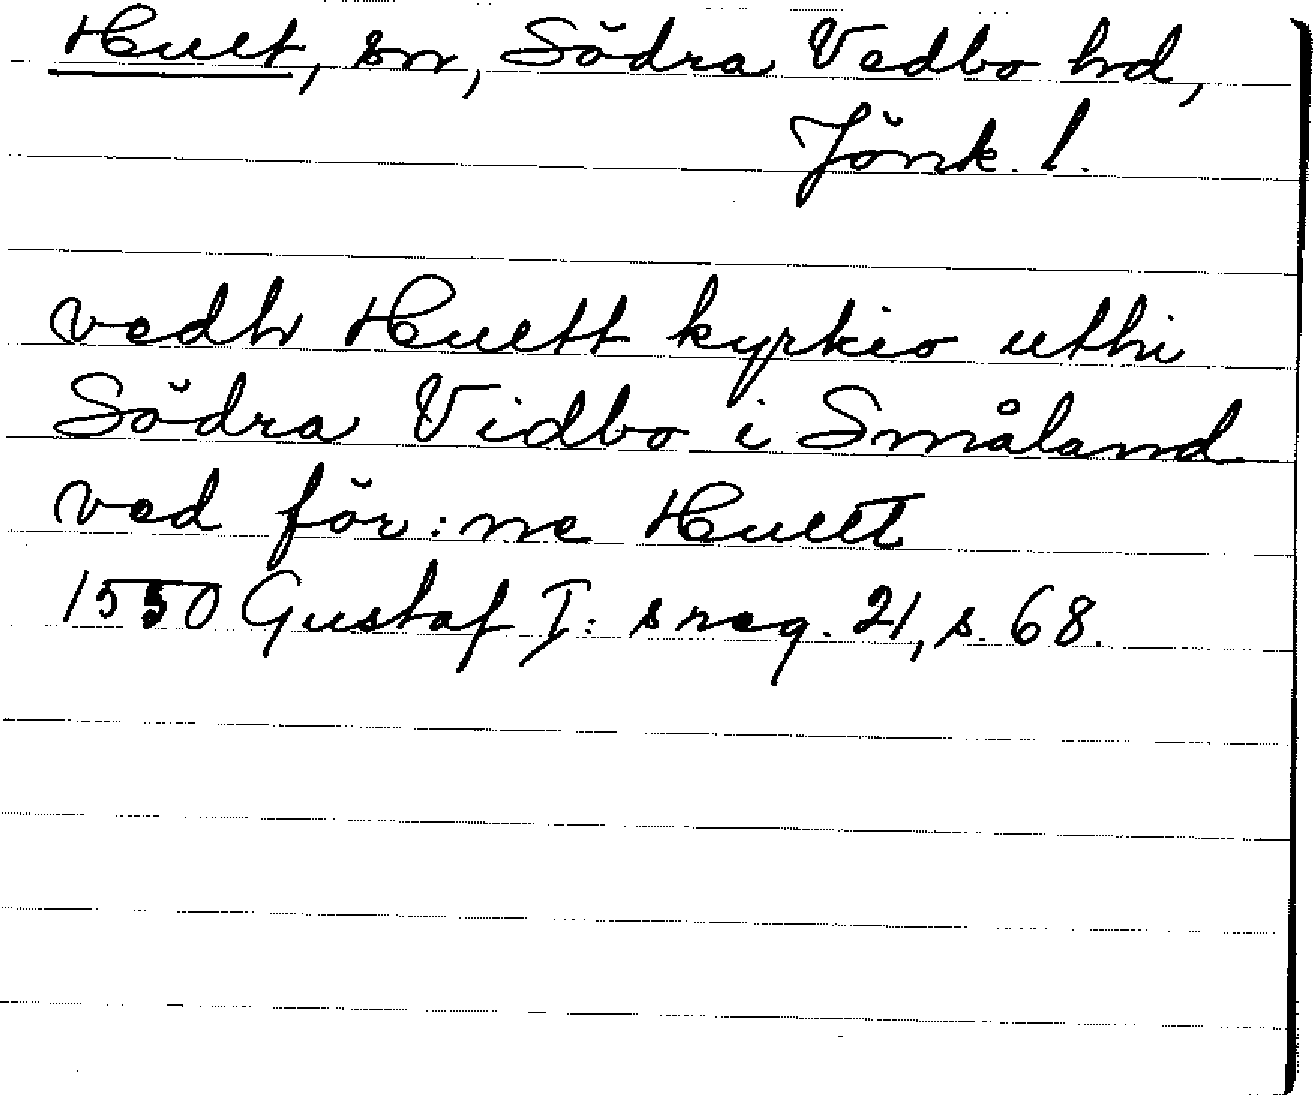 Hult, sn, Södra Vedbo hd,
Jönk. l.
vedh Hultt kyrkio uthi
Södra Vidbo i Småland
ved för:ne Hultt
1550 Gustaf I:s reg. 21, s. 68.